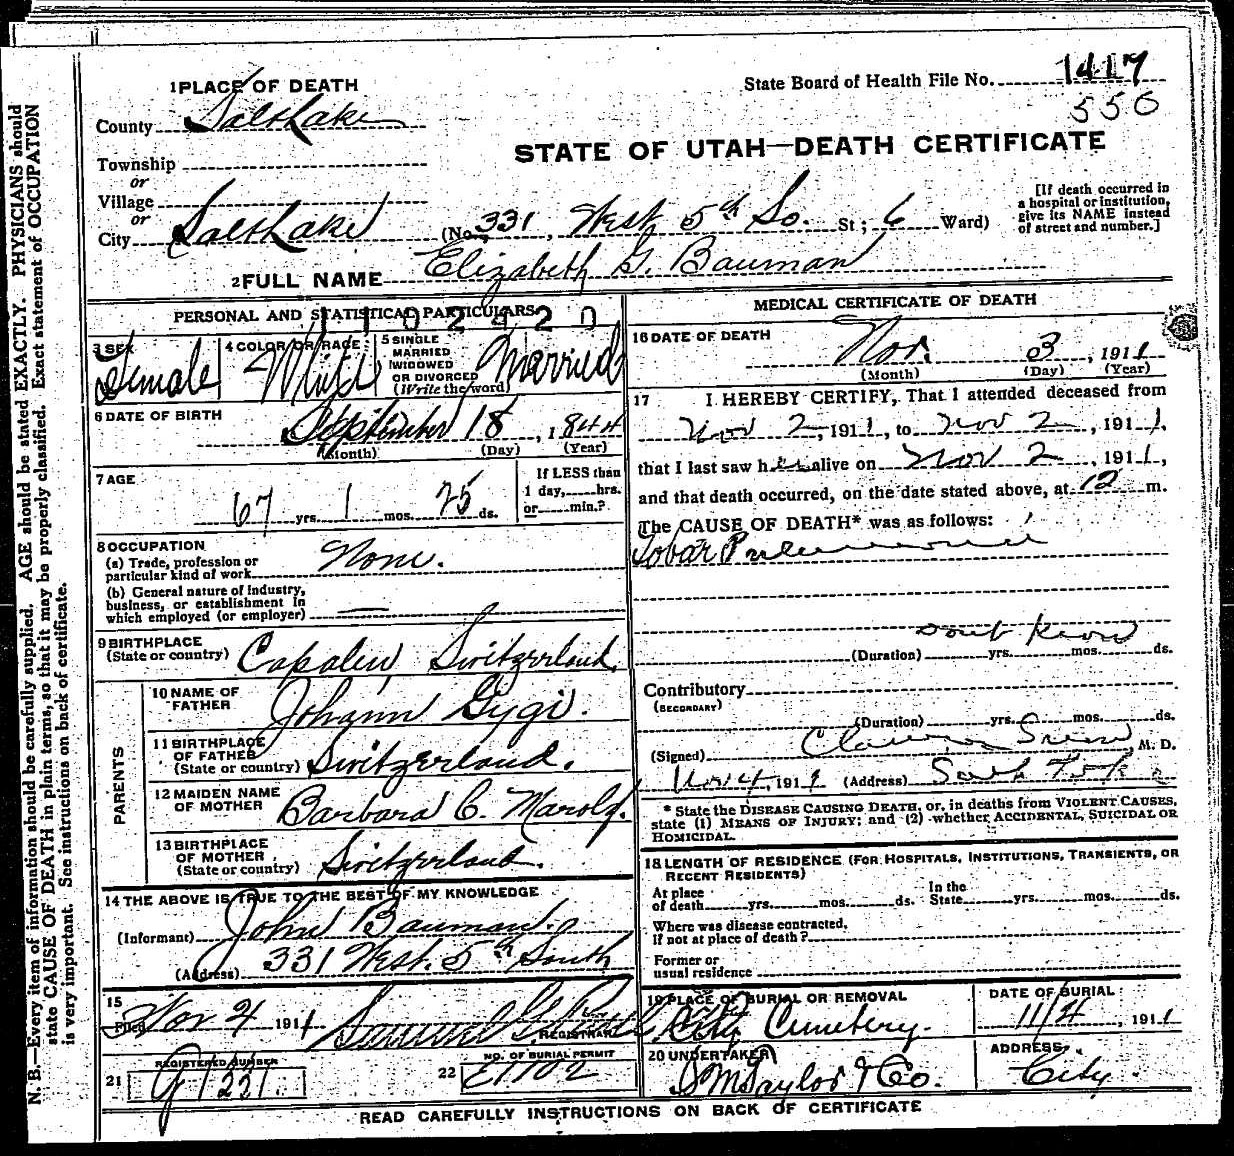 N. B.—Every item of information should be carefully supplied. AGE should be stated EXACTLY. PHYSICIANS should
state CAUSE OF DEATH in plain terms, so that it may be properly classified. Exact statement of OCCUPATION
is very important. See instructions on back of certificate.
1 PLACE OF DEATH
State Board of Health File No. 1417
550
County Salt Lake
STATE OF UTAH—DEATH CERTIFICATE
Township
or
Village
or
City Salt Lake (No. 331, West 5th So. St; 6 Ward)
[If death occurred in
a hospital or institution,
give its NAME instead
of street and number.]
2 FULL NAME Elizabeth G. Bauman
PERSONAL AND STATISTICAL PARTICULARS
1102920
3 SEX Female
4 COLOR OR RACE White
5 SINGLE
MARRIED
WIDOWED
OR DIVORCED
(Write the word) Married
6 DATE OF BIRTH
September 18, 1844
(Month) (Day) (Year)
7 AGE
67 yrs. 1 mos. 25 ds.
If LESS than
1 day, hrs.
or min.?
8 OCCUPATION
(a) Trade, profession or
particular kind of work None.
(b) General nature of industry,
business, or establishment in
which employed (or employer) —
9 BIRTHPLACE
(State or country) Capolen, Switzerland
PARENTS
10 NAME OF
FATHER Johann Gygi.
11 BIRTHPLACE
OF FATHER
(State or country) Switzerland.
12 MAIDEN NAME
OF MOTHER Barbara C. Marolf.
13 BIRTHPLACE
OF MOTHER
(State or country) Switzerland.
14 THE ABOVE IS TRUE TO THE BEST OF MY KNOWLEDGE
(Informant) John Bauman.
(Address) 331 West. 5th South
15
Filed Nov 4 1911 Samuel G.
REGISTRAR
REGISTERED NUMBER
21 G1221
NO. OF BURIAL PERMIT
22 E1102
MEDICAL CERTIFICATE OF DEATH
16 DATE OF DEATH
Nov. 3, 1911
(Month) (Day) (Year)
17 I HEREBY CERTIFY, That I attended deceased from
Nov 2, 1911, to Nov 2, 1911,
that I last saw her alive on Nov 2, 1911,
and that death occurred, on the date stated above, at 12 m.
The CAUSE OF DEATH* was as follows:
Lobar Pneumonia
dont know
(Duration) yrs. mos. ds.
Contributory
(SECONDARY)
(Duration) yrs. mos. ds.
(Signed) M. D.
Nov 4, 1911 (Address)
* State the DISEASE CAUSING DEATH, or, in deaths from VIOLENT CAUSES,
state (1) MEANS OF INJURY; and (2) whether ACCIDENTAL, SUICIDAL OR
HOMICIDAL.
18 LENGTH OF RESIDENCE (FOR HOSPITALS, INSTITUTIONS, TRANSIENTS, OR
RECENT RESIDENTS)
At place
of death yrs. mos. ds.
In the
State yrs. mos. ds.
Where was disease contracted,
if not at place of death?
Former or
usual residence
19 PLACE OF BURIAL OR REMOVAL
City Cemetery.
DATE OF BURIAL
11/4, 1911
20 UNDERTAKER
S M Taylor & Co.
ADDRESS
City.
READ CAREFULLY INSTRUCTIONS ON BACK OF CERTIFICATE